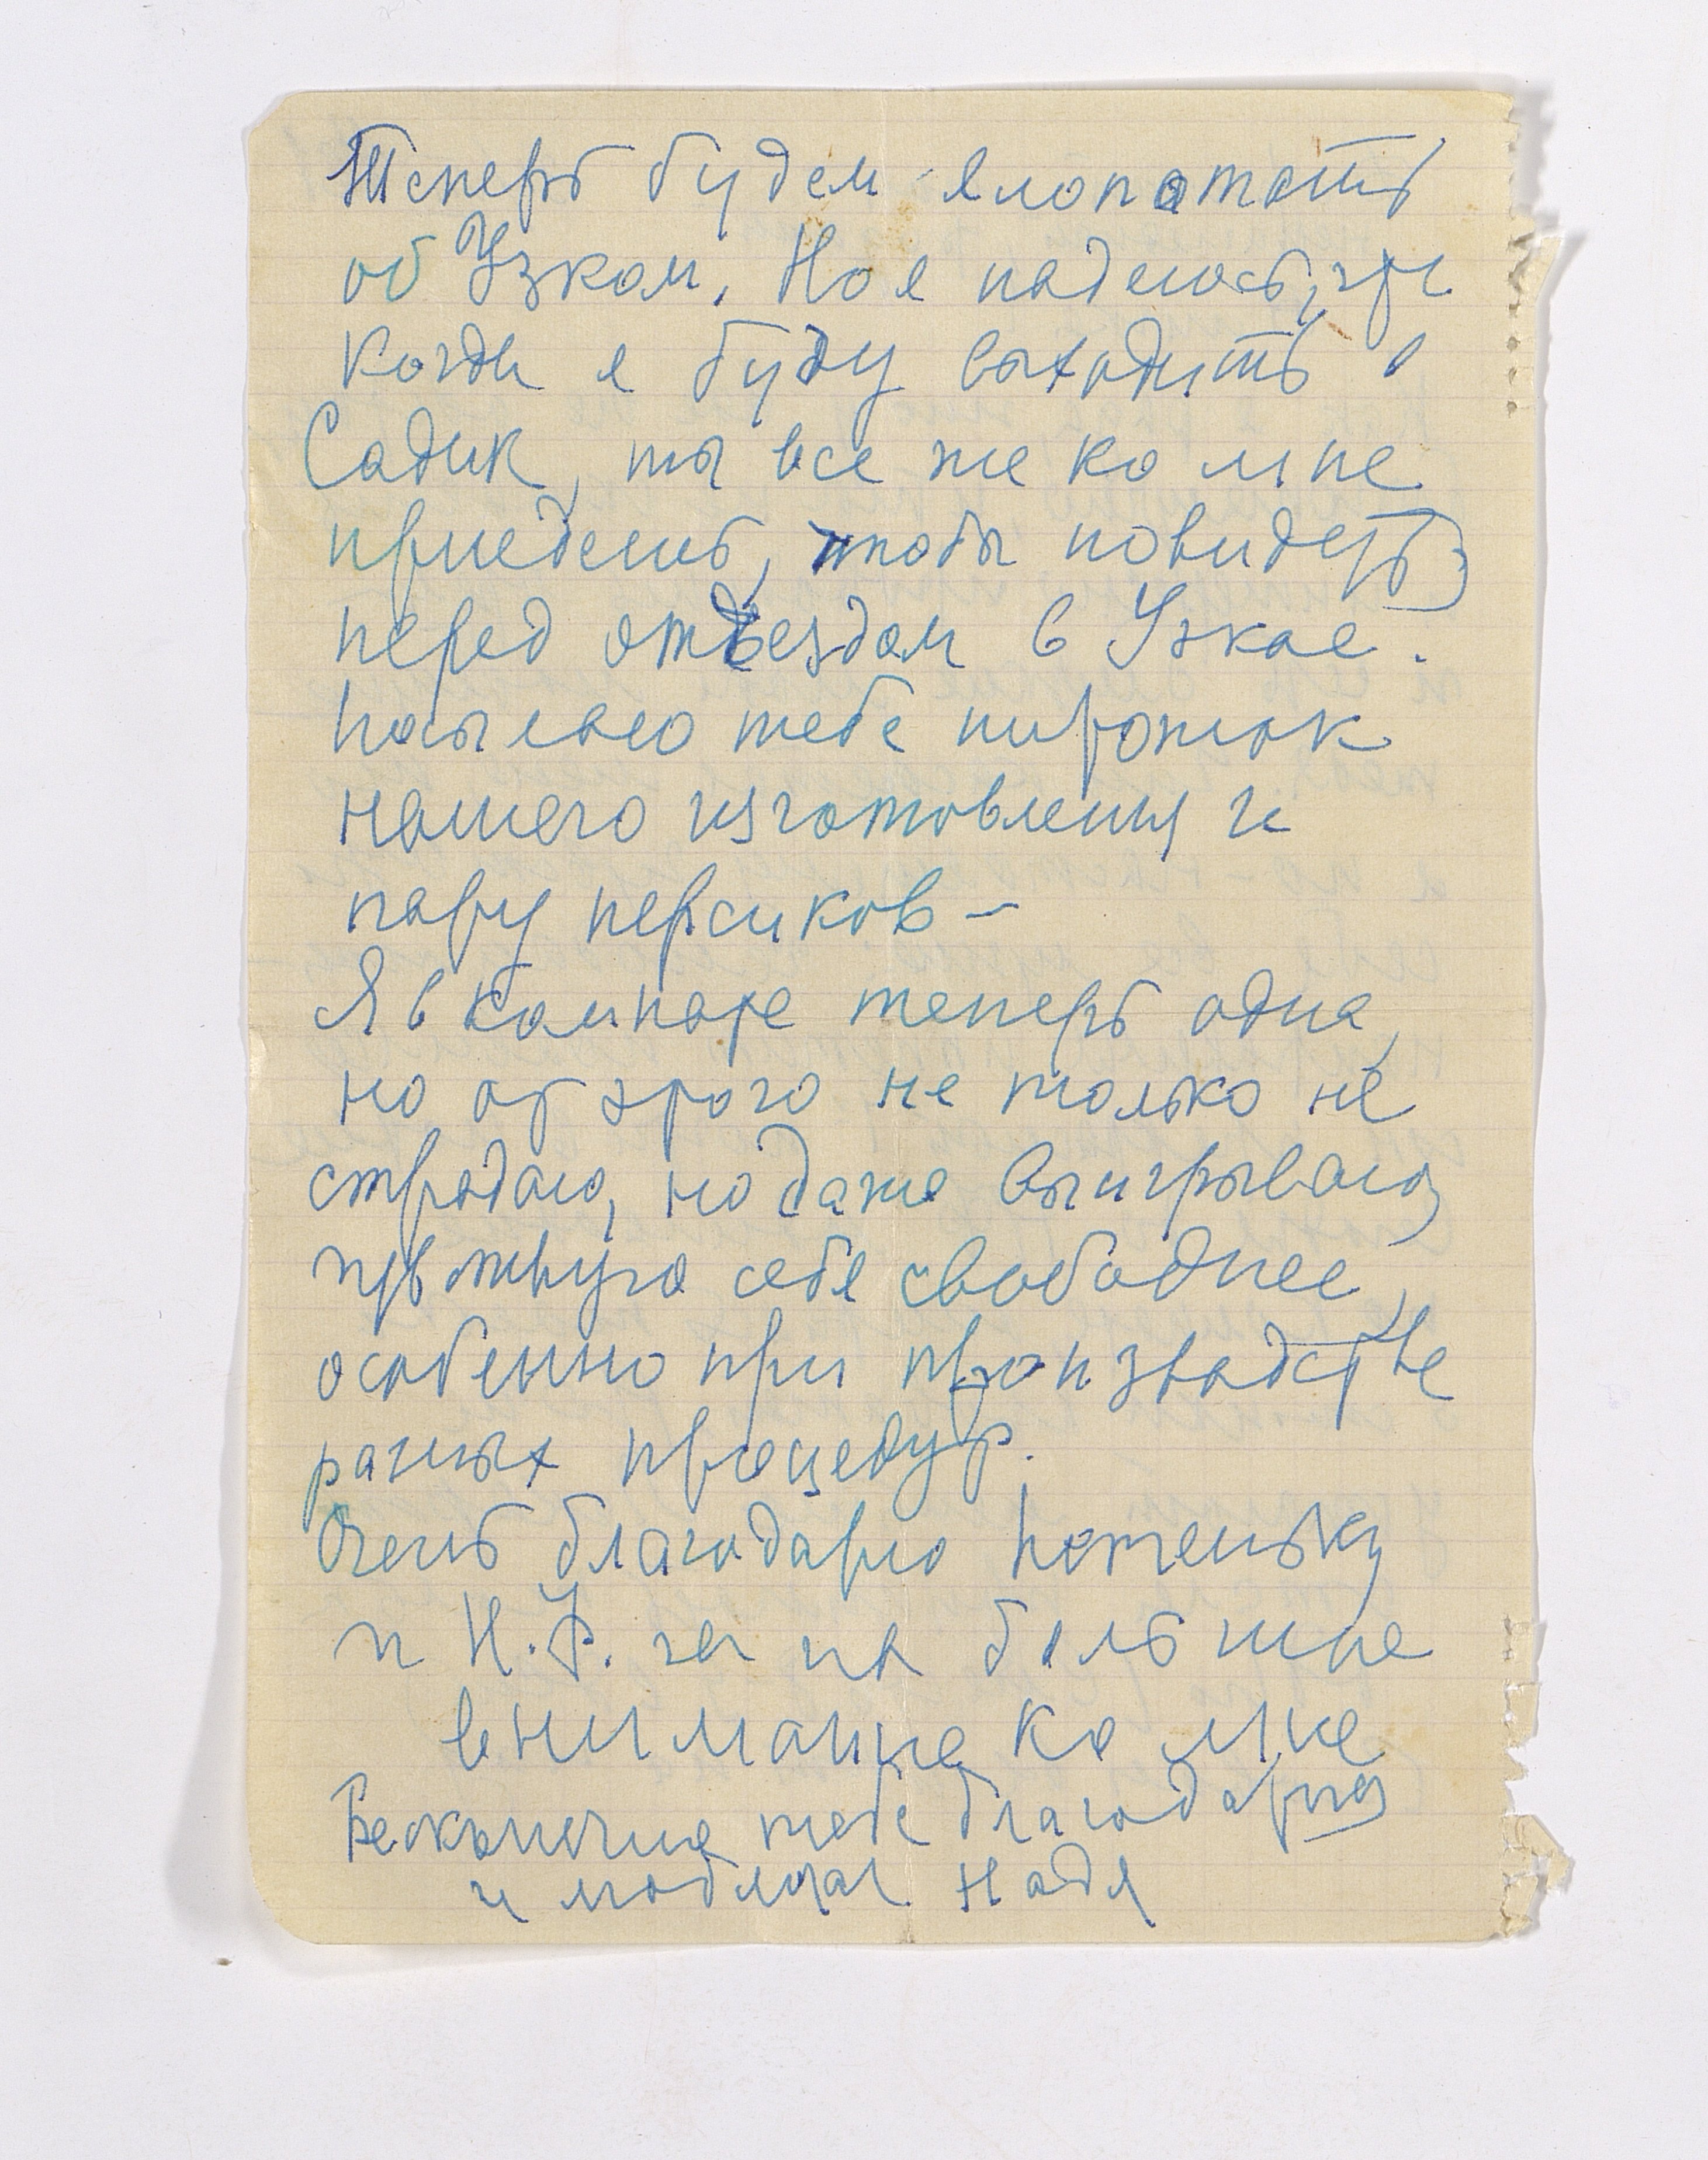 Теперь будем хлопотать
об Узком. Но я надеюсь, что
когда я буду выходить в
Садик, ты все же ко мне
приедешь, чтобы повидеть
перед отъездом в Узкое.
Посылаю тебе пирожок
нашего изготовления и
пару персиков —
Я в комнате теперь одна,
но от этого не только не
страдаю, но даже выигрываю,
чувствуя себя свободнее,
особенно при производстве
разных процедур.
Очень благодарю
и Н.Ф. за их большие
внимание ко мне
Бесконечно тебе благодарная
и любящая Надя